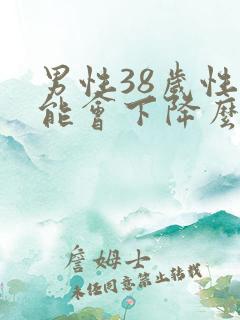 男性38歲性
能會下降麼
詹姆士
未經同意禁止轉載